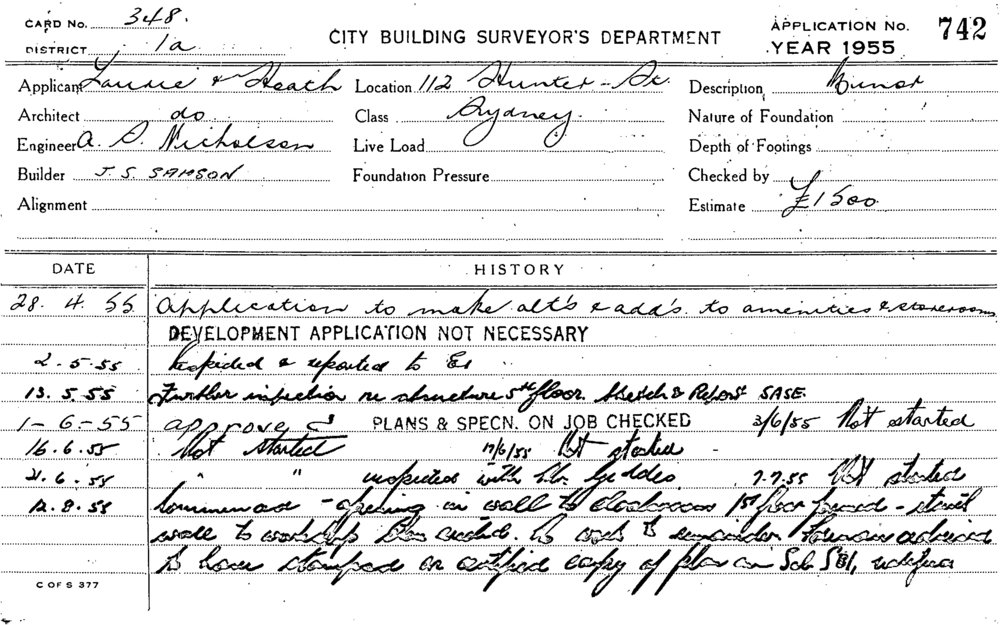 CARD No. 348.
DISTRICT 1a
CITY BUILDING SURVEYOR'S DEPARTMENT
APPLICATION No. 742
YEAR 1955
Applicant Laurie & Heath
Location 112 Hunter - St.
Description Minor
Architect do
Class Sydney.
Nature of Foundation
Engineer A. D. Nicholson
Live Load
Depth of Footings
Builder J. S. SAMSON
Foundation Pressure
Checked by
Alignment
Estimate £1500.
DATE HISTORY
28. 4. 55 Application to make alt's & add's. to amenities & storerooms
DEVELOPMENT APPLICATION NOT NECESSARY
2. 5. 55 Inspected & reported to
13. 5. 55 Further inspection re structure 5th floor. Sketch & Report SASE.
1-6-55 approved PLANS & SPECN. ON JOB CHECKED 3/6/55 Not started
16. 6. 55 Not started 17/6/55 Not started
21. 6. 55 " " inspected with Mr. Geddes 7.7.55 Not started
12. 8. 55 Commenced - opening in wall to cloakroom 1st floor formed -
wall to workshop erected. No work to remainder Foreman advised
to have stamped or certified copy of plan on Job
C OF S 377